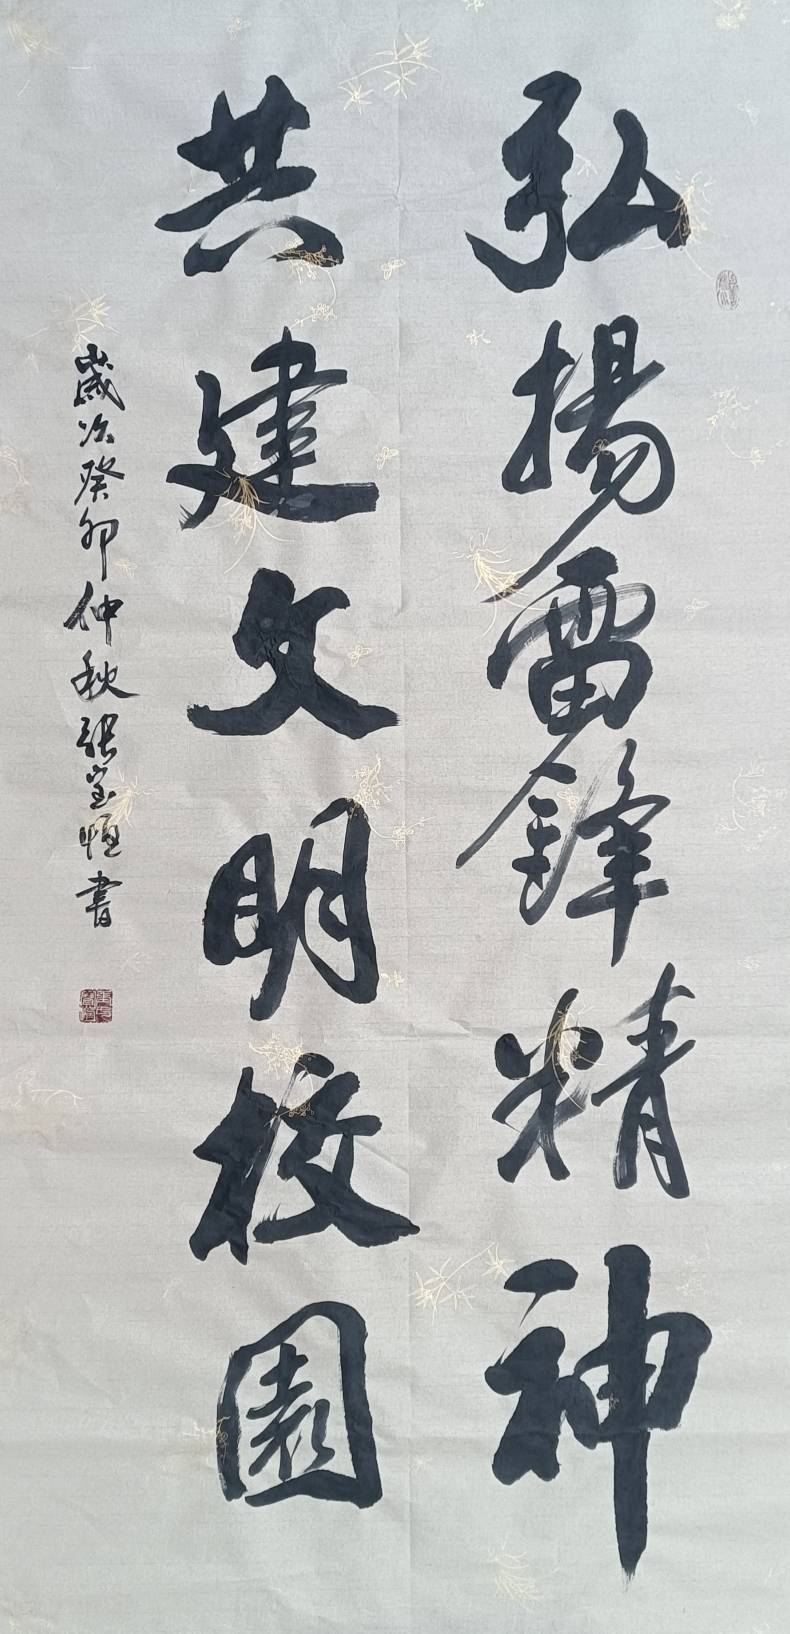 弘揚雷鋒精神
共建文明校園
歲次癸卯仲秋張宝恒書